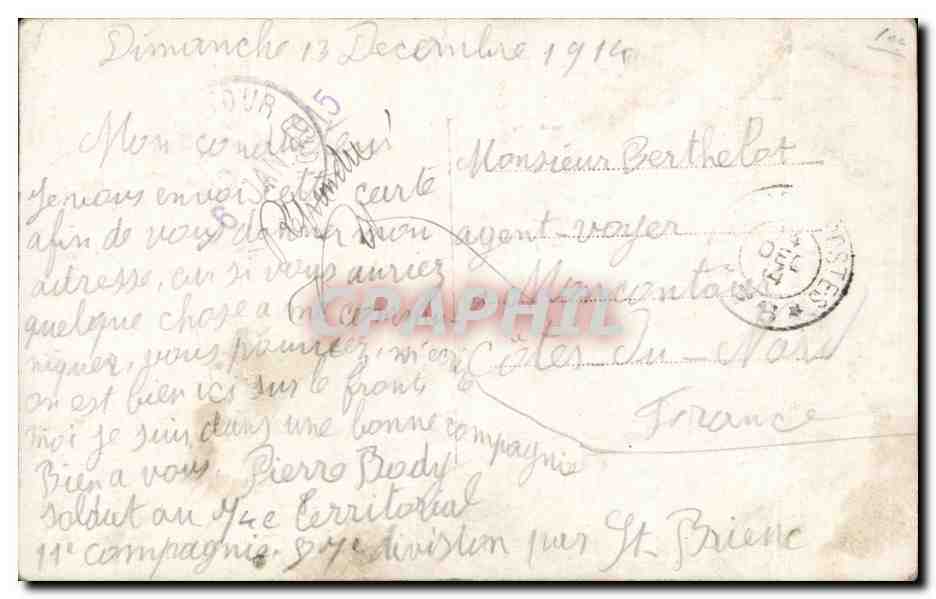 Dimanche 13 Decembre 1914
Mon conducteur
Je vous envoi cette carte
afin de vous donner mon
adresse, car si vous auriez
quelque chose a me commu
niquer, vous pourriez,
on est bien ici sur le front
moi je suis dans une bonne compagnie
Bien a vous. Pierre Body
soldat au 74e territorial
11e compagnie. 87e division par St Brieuc
Répondu
Monsieur Berthelot
agent-voyer
Moncontour
Côtes-du-Nord
France
POSTES
CPARAMA